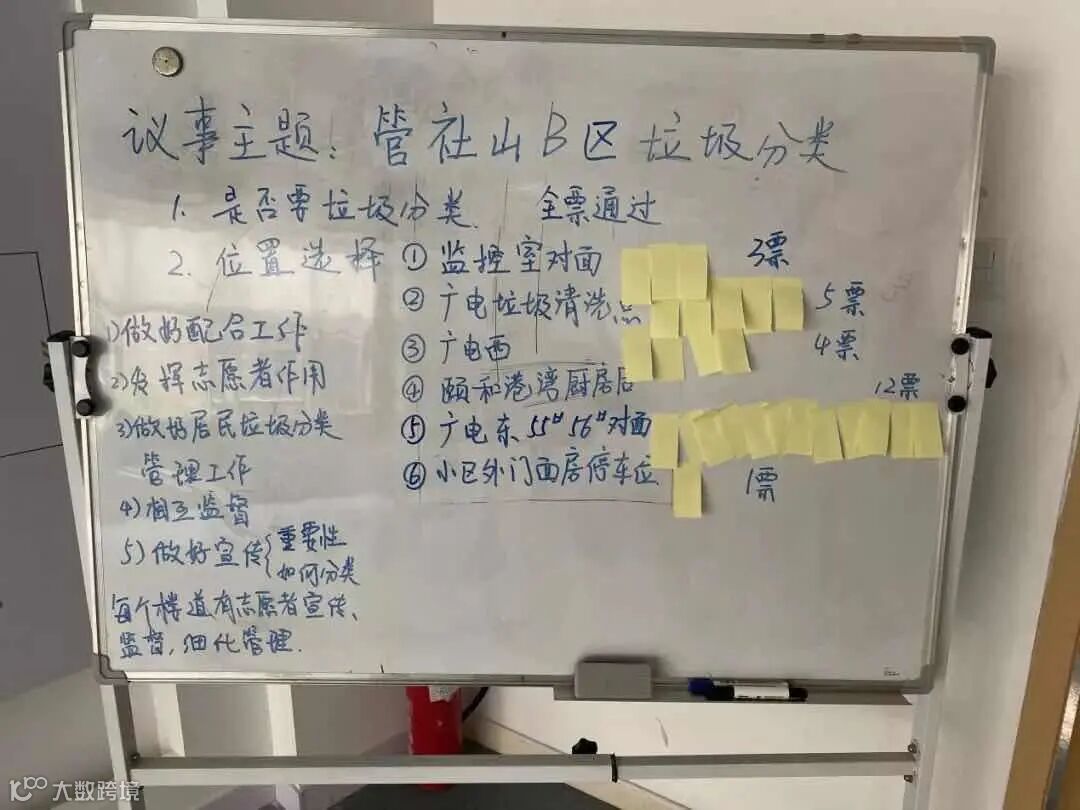 议事主题：管社山B区垃圾分类
1. 是否要垃圾分类 全票通过
2. 位置选择 ① 监控室对面 3票
② 广电垃圾清洗点 5票
③ 广电西 4票
④ 颐和港湾厨房后
⑤ 广电东55#56#对面 12票
⑥ 小区外门面房停车位 1票
1)做好配合工作
2)发挥志愿者作用
3)做好居民垃圾分类
管理工作
4)相互监督
5)做好宣传{重要性
如何分类
每个楼道有志愿者宣传、
监督,细化管理.
大数跨境